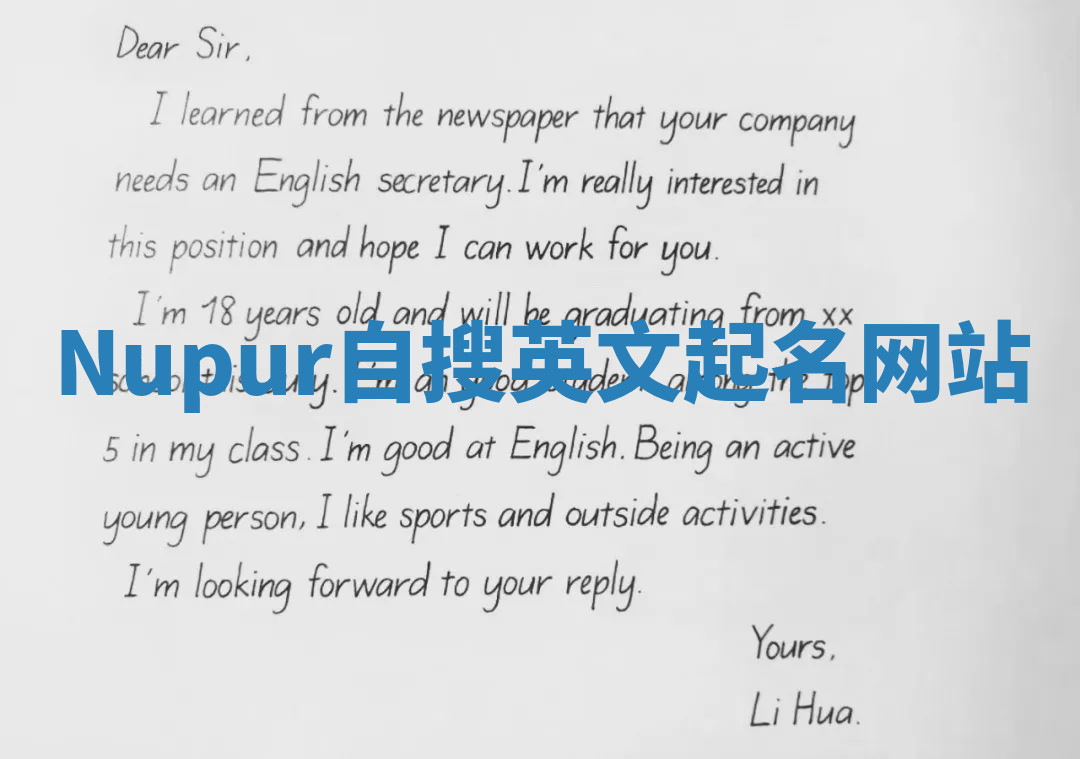 Dear Sir,
I learned from the newspaper that your company
needs an English secretary. I'm really interested in
this position and hope I can work for you.
I'm 18 years old and will be graduating from xx
Nupur自搜英文起名网站
school this July. I'm an good student among the top
5 in my class. I'm good at English. Being an active
young person, I like sports and outside activities.
I'm looking forward to your reply.
Yours,
Li Hua.